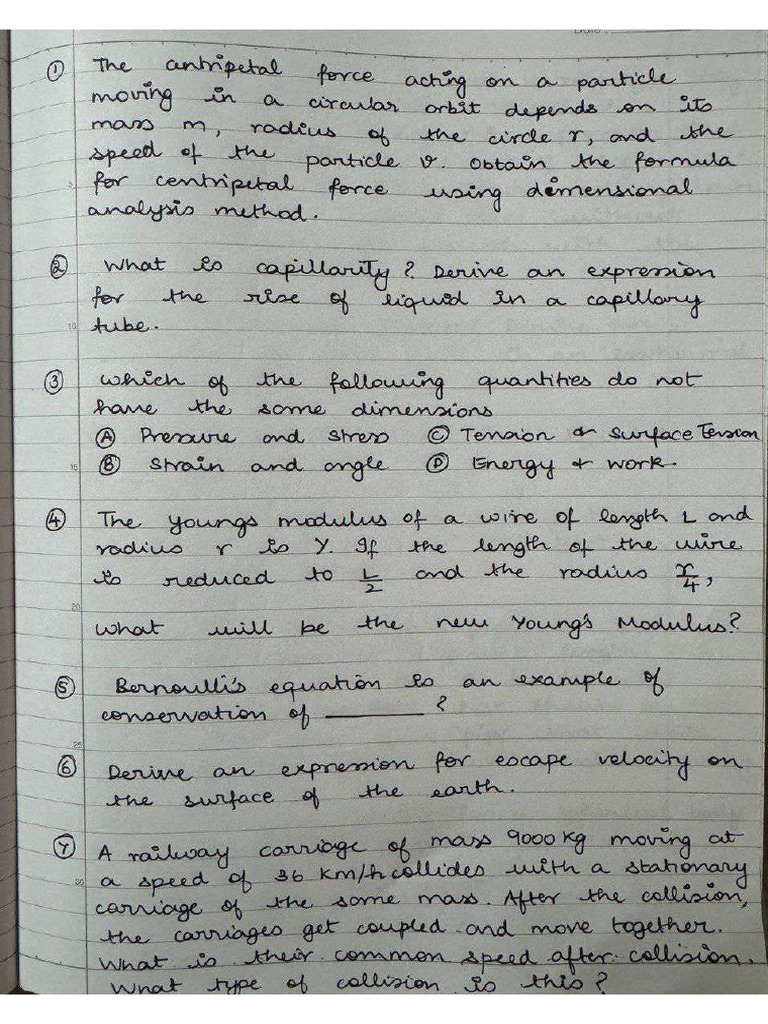 Date
① The centripetal force acting on a particle
moving in a circular orbit depends on its
mass m, radius of the circle r, and the
speed of the particle v. Obtain the formula
for centripetal force using dimensional
analysis method.
② What is capillarity? Derive an expression
for the rise of liquid in a capillary
tube.
③ Which of the following quantities do not
have the same dimensions
Ⓐ Pressure and stress Ⓒ Tension & Surface Tension
Ⓑ Strain and angle Ⓓ Energy & work.
④ The Youngs modulus of a wire of length L and
radius r is Y. If the length of the wire
is reduced to L/2 and the radius r/4,
What will be the new Young's Modulus?
⑤ Bernoulli's equation is an example of
conservation of ________ ?
⑥ Derive an expression for escape velocity on
the surface of the earth.
⑦ A railway carriage of mass 9000 kg moving at
a speed of 36 km/h collides with a stationary
carriage of the same mass. After the collision,
the carriages get coupled and move together.
What is their common speed after collision.
What type of collision is this?